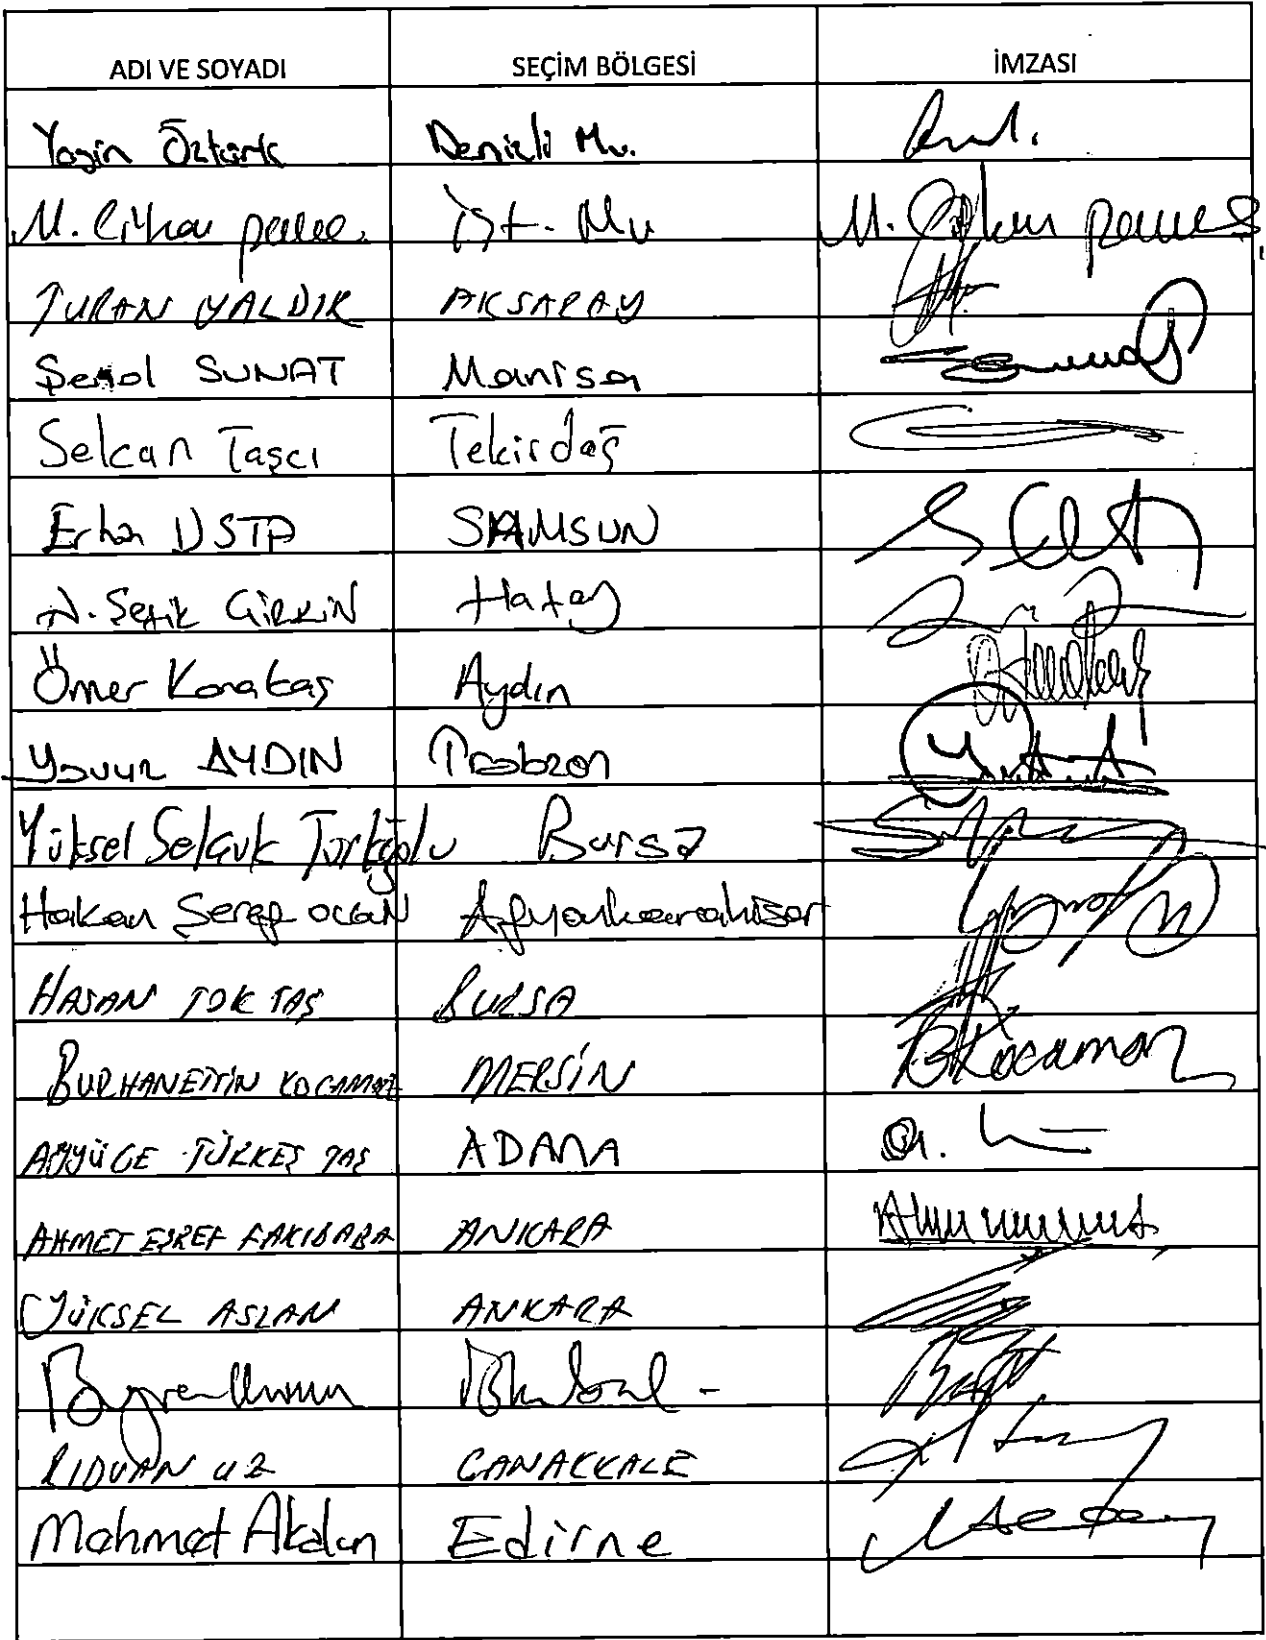 ADI VE SOYADI SEÇİM BÖLGESİ İMZASI
Yasin Öztürk Denizli Mv.
M. Cihan İst. Mv
TURAN YALDIR AKSARAY
Şenol SUNAT Manisa
Selcan Taşcı Tekirdağ
Erhan USTA SAMSUN
A. Şefik ÇİRKİN Hatay
Ömer Karakaş Aydın
Yavuz AYDIN Trabzon
Yüksel Selçuk Türkoğlu Bursa
Hakan Şeref OLGUN Afyonkarahisar
HASAN TOKTAŞ BURSA
BURHANETTİN KOCAMAZ MERSİN B Kocamaz
AYYÜCE TÜRKEŞ TAŞ ADANA
AHMET EŞREF FAKIBABA ANKARA
YÜKSEL ASLAN ANKARA
RIDVAN UZ ÇANAKKALE
Mehmet Akalın Edirne